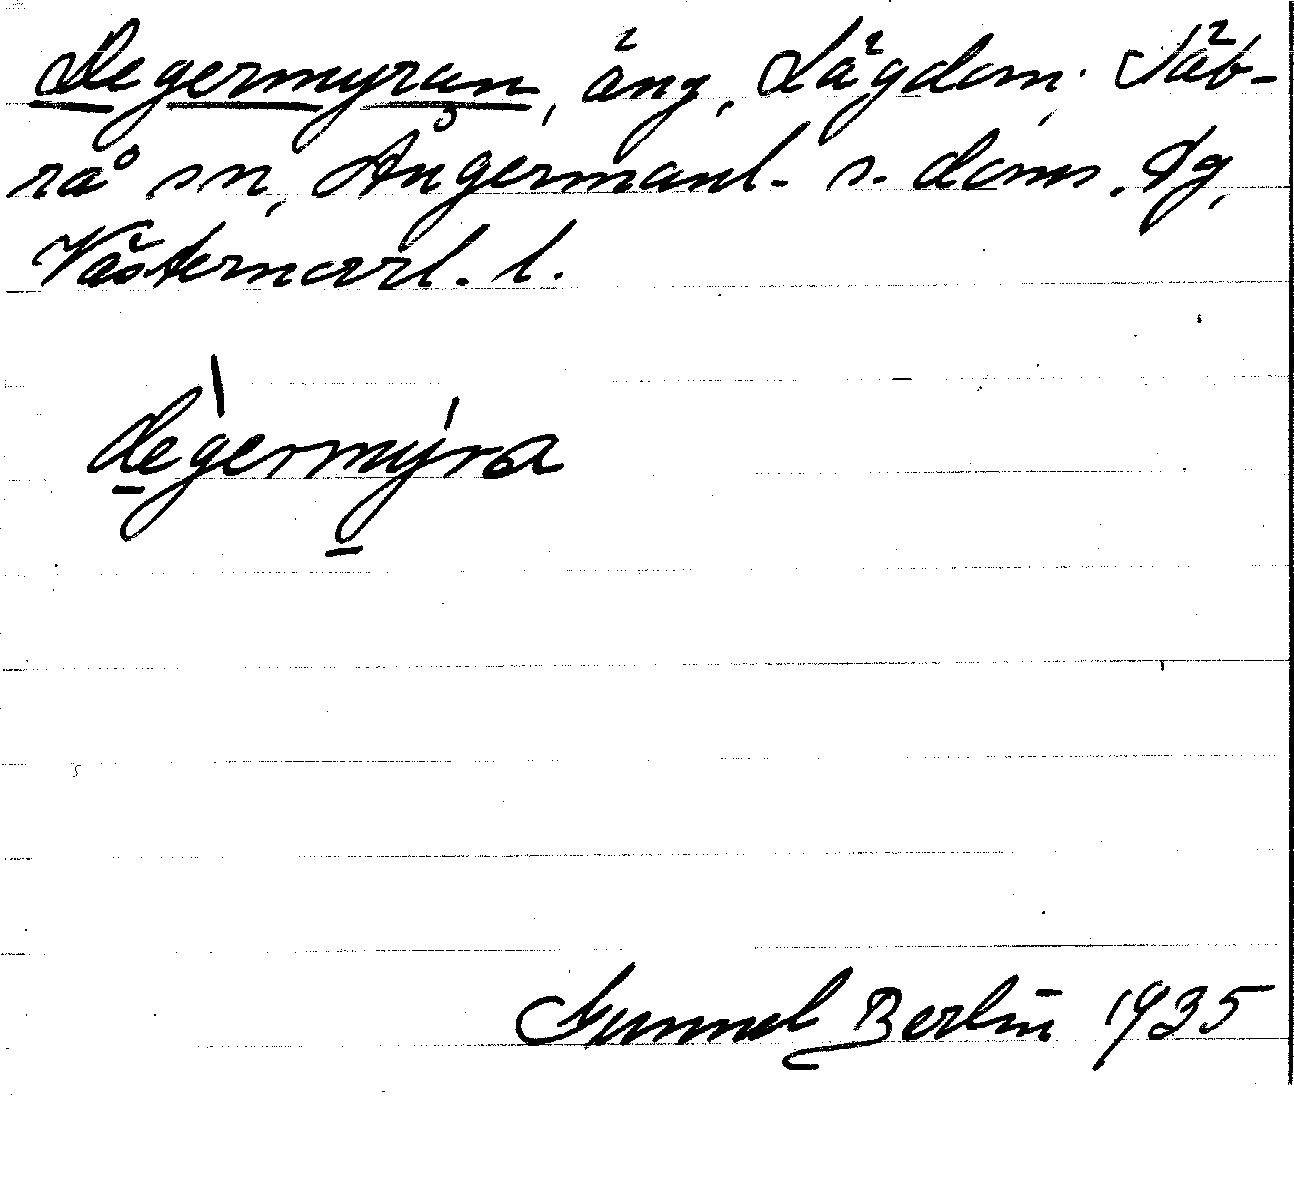 Degermyran, äng, Lägdom, Säb-
rå sn, Ångermanl. s. doms. tg,
Västernorrl. l.
degermyra
Gunnel Berlin 1935